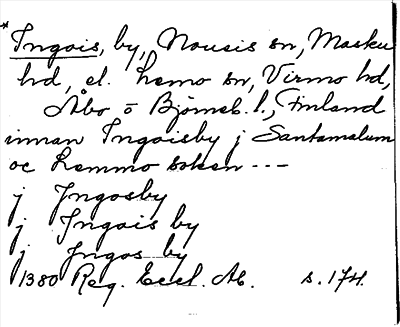 * Ingois, by, Nousis sn, Masku
hd, el. Lemo sn, Virmo hd,
Åbo o Björneb. l., Finland
innan Ingoisby j Santamalum
oc Lemmo soken ---
j Ingosby
j Ingois by
j Ingos by
1380 Reg. Eccl. Ab. s. 174.